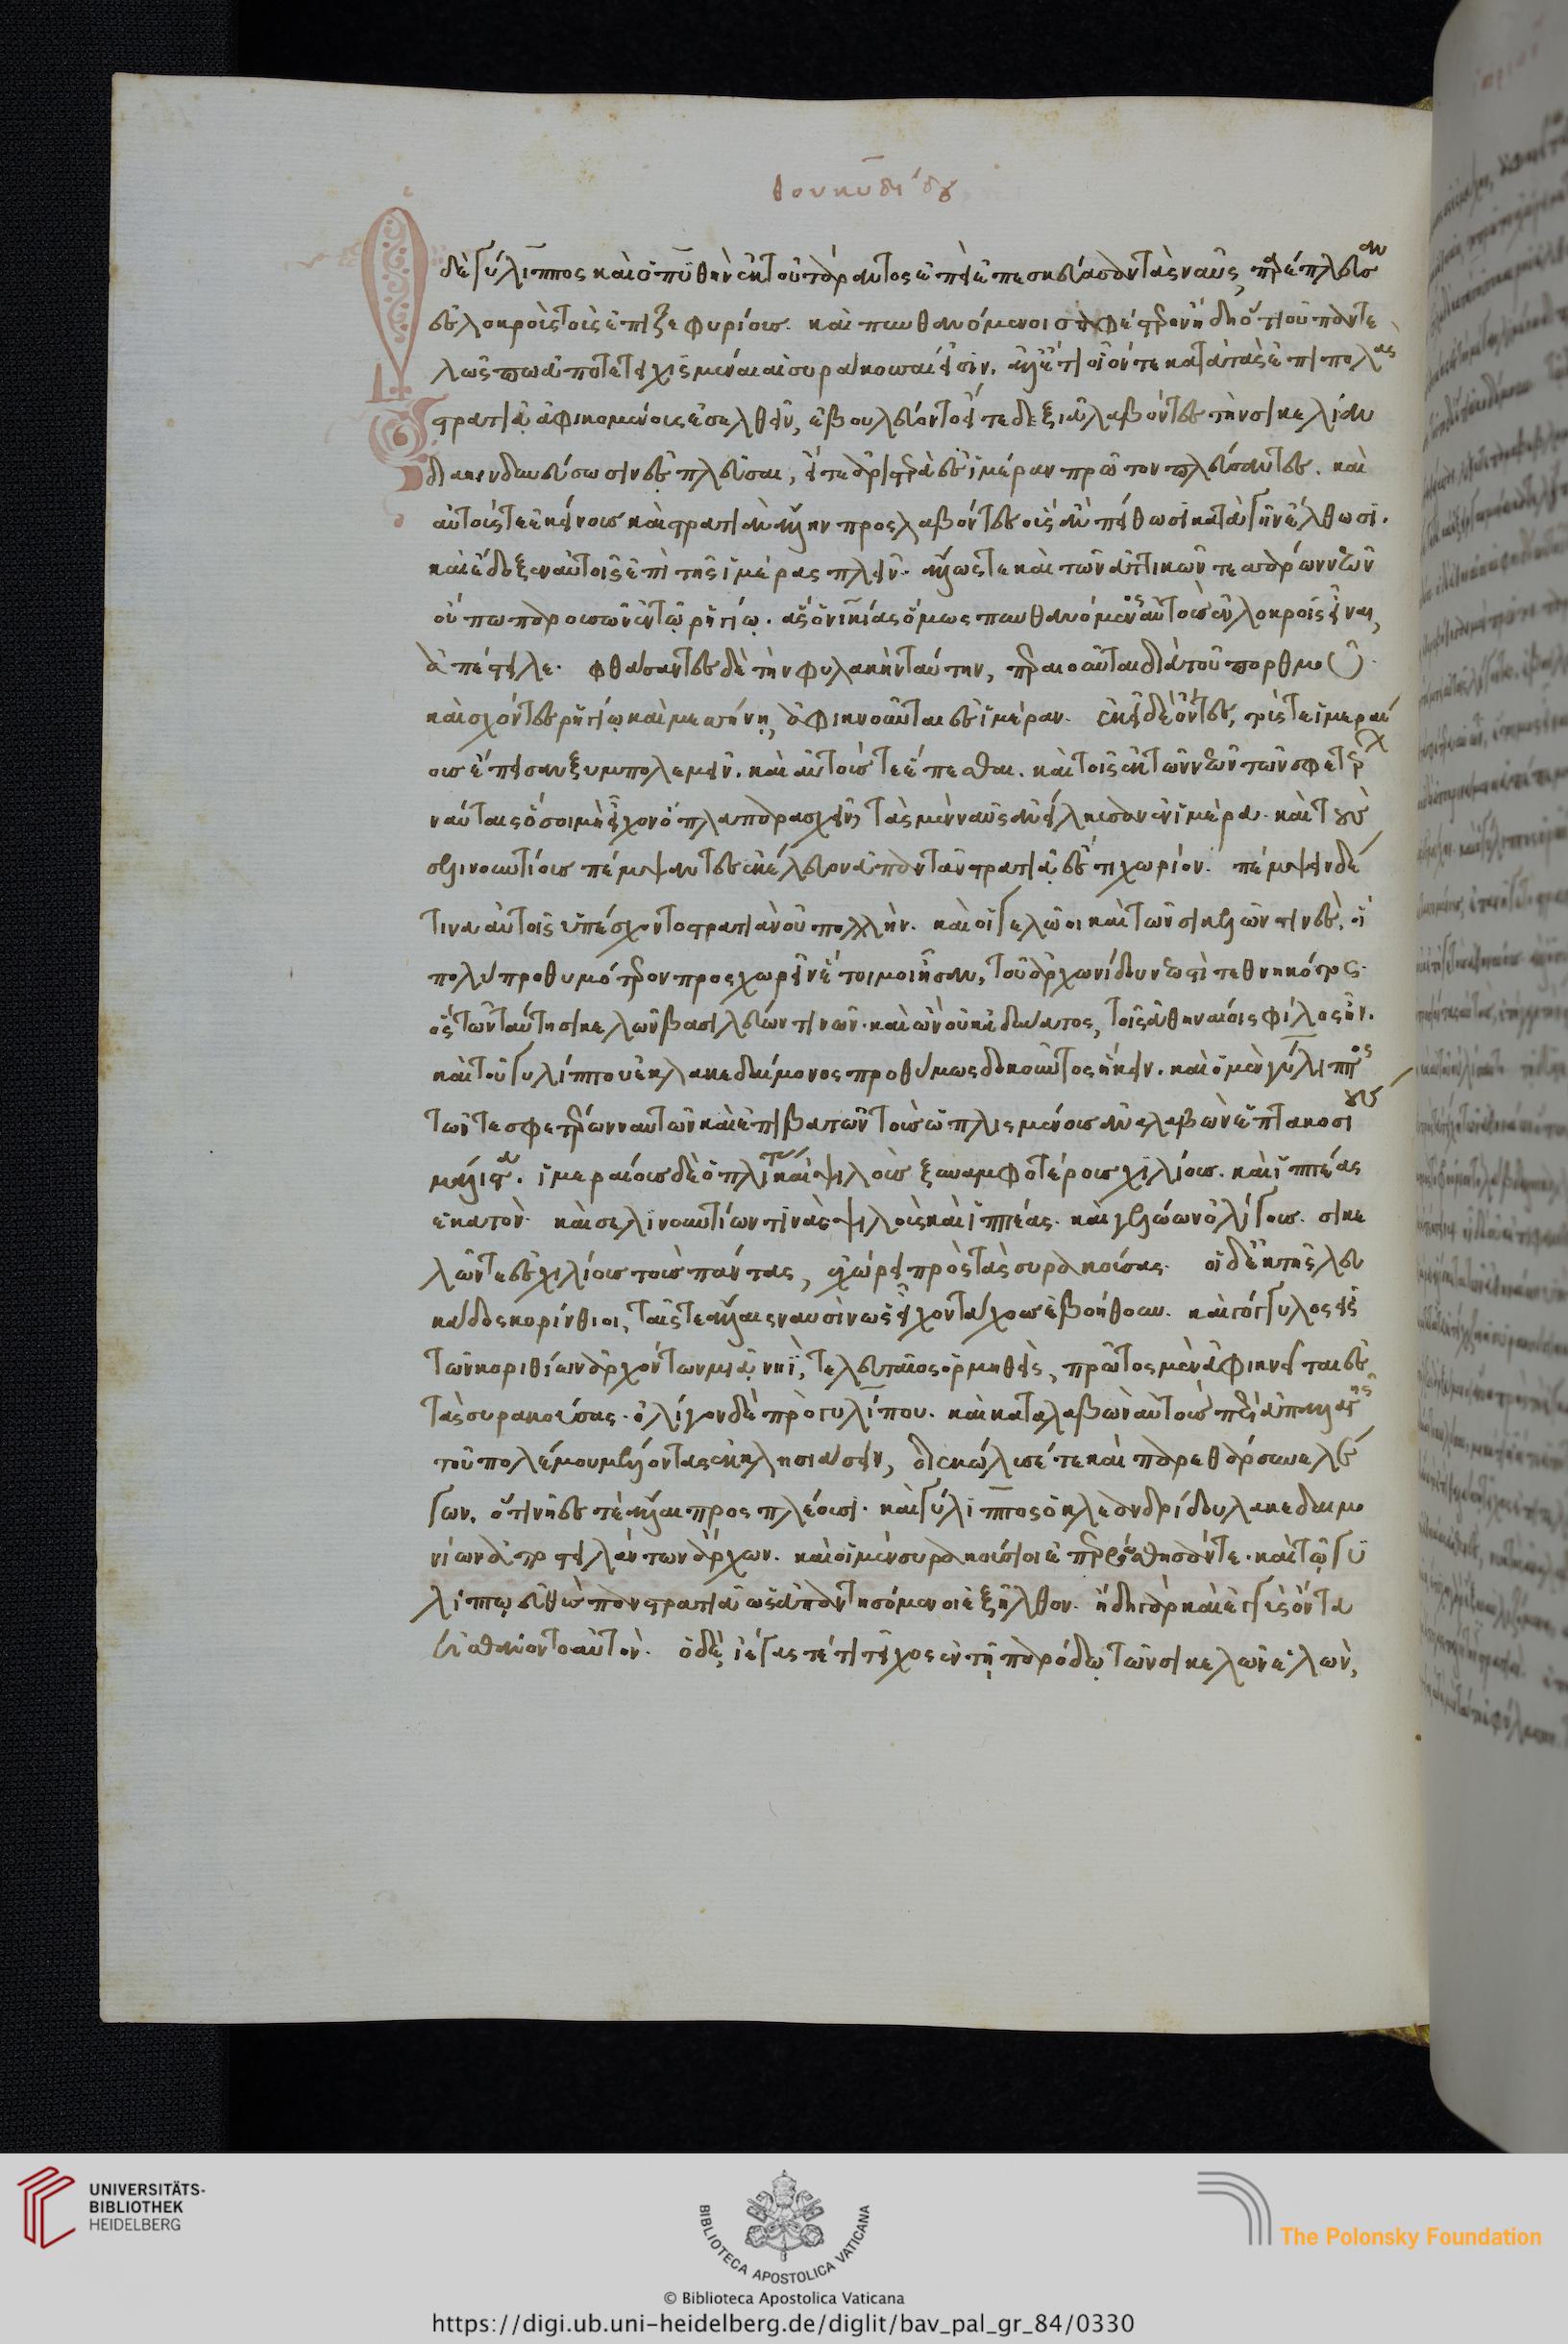 Θουκυδίδου
Ὁ δὲ γύλιππος καὶ ὁ πυθὴν ἐκ τοῦ τάραντος ἐπεὶ ἐπεσκεύασαν τὰς ναῦς, παρέπλευσαν
ἐς λοκροὺς τοὺς ἐπιζεφυρίους. καὶ πυνθανόμενοι σαφέστερον ἤδη ὅτι οὐ παντε
λῶς πω ἀποτετειχισμέναι αἱ συράκουσαί εἰσιν. ἀλλ' ἔτι οἷόν τε κατὰ τὰς ἐπιπολὰς
στρατιᾷ ἀφικομένοις ἐσελθεῖν, ἐβουλεύοντο εἴτε δεξιᾷ λαβόντες τὴν σικελίαν
διακινδυνεύσωσιν ἐς πλεῦσαι, εἴτε ἀριστερᾷ ἐς ἱμέραν πρῶτον πλεύσαντες. καὶ
αὐτούς τε ἐκείνους καὶ στρατιὰν ἄλλην προσλαβόντες οὓς ἂν πείθωσι κατὰ γῆν ἔλθωσι.
καὶ ἔδοξεν αὐτοῖς ἐπὶ τῆς ἱμέρας πλεῖν. ἄλλως τε καὶ τῶν ἀττικῶν τεσσάρων νεῶν
οὔπω παρουσῶν ἐν τῷ ῥηγίῳ. ἃς ὁ νικίας ὅμως πυνθανόμενος αὐτοὺς ἐν λοκροῖς εἶναι,
ἀπέστειλε. φθάσαντες δὲ τὴν φυλακὴν ταύτην, περαιοῦνται διὰ τοῦ πορθμοῦ.
καὶ σχόντες ῥηγίῳ καὶ μεσσήνῃ, ἀφικνοῦνται ἐς ἱμέραν. ἐκεῖ δὲ ὄντες, τούς τε ἱμεραί
ους ἔπεισαν ξυμπολεμεῖν. καὶ αὐτούς τε ἕπεσθαι. καὶ τοῖς ἐκ τῶν νεῶν τῶν σφετέρων
ναύταις ὅσοι μὴ εἶχον ὅπλα παρασχεῖν, τὰς μὲν ναῦς ἀνείλκυσαν ἐν ἱμέρᾳ. καὶ τοὺς
σελινουντίους πέμψαντες ἐκέλευον ἀπαντᾶν στρατιᾷ ἔς τι χωρίον. πέμψειν δέ
τινα αὐτοῖς ὑπέσχοντο στρατιὰν οὐ πολλὴν. καὶ οἱ γελῷοι καὶ τῶν σικελῶν τινὲς, οἳ
πολὺ προθυμότερον προσχωρεῖν ἕτοιμοι ἦσαν, τοῦ ἀρχωνίδου νεωστὶ τεθνηκότος.
ὃς τῶν ταύτῃ σικελῶν βασιλεύων τινῶν. καὶ ὢν οὐκ ἀδύνατος, τοῖς ἀθηναίοις φίλος ἦν.
καὶ τοῦ γυλίππου ἐκ λακεδαίμονος προθύμως δοκοῦντος ἥκειν. καὶ ὁ μὲν γύλιππος
τῶν τε σφετέρων ναυτῶν καὶ ἐπιβατῶν τοὺς ὡπλισμένους ἀναλαβὼν ἑπτακοσίους
μάλιστα. ἱμεραίους δὲ ὁπλίτας καὶ ψιλοὺς ξυναμφοτέρους χιλίους. καὶ ἱππέας
ἑκατὸν. καὶ σελινουντίων τινὰς ψιλοὺς καὶ ἱππέας. καὶ γελῴων ὀλίγους. σικε
λῶν τε ἐς χιλίους τοὺς πάντας, ἐχώρει πρὸς τὰς συρακούσας. οἱ δ' ἐκ τῆς λευ
κάδος κορίνθιοι, ταῖς τε ἄλλαις ναυσὶν ὡς εἶχον τάχους ἐβοήθουν. καὶ γογγύλος εἷς
τῶν κορινθίων ἀρχόντων μιᾷ νηῒ, τελευταῖος ὁρμηθεὶς, πρῶτος μὲν ἀφικνεῖται ἐς
τὰς συρακούσας. ὀλίγον δὲ πρὸ γυλίππου. καὶ καταλαβὼν αὐτοὺς περὶ ἀπαλλαγῆς
τοῦ πολέμου μέλλοντας ἐκκλησιάσειν, διεκώλυσέ τε καὶ παρεθάρσυνε λέ
γων. ὅτι νῆές τε ἄλλαι προσπλέουσι. καὶ γύλιππος ὁ κλεανδρίδου λακεδαιμο
νίων ἀποστειλάντων ἄρχων. καὶ οἱ μὲν συρακούσιοι ἐπερρώσθησάν τε. καὶ τῷ γυ
λίππῳ εὐθὺς πανστρατιᾷ ὡς ἀπαντησόμενοι ἐξῆλθον. ἤδη γὰρ καὶ ἐγγὺς ὄντα
ᾐσθάνοντο αὐτὸν. ὁ δὲ, ἰέτας τέ τι τεῖχος ἐν τῇ παρόδῳ τῶν σικελῶν ἑλὼν,
UNIVERSITÄTS-
BIBLIOTHEK
HEIDELBERG
BIBLIOTECA APOSTOLICA VATICANA
The Polonsky Foundation
© Biblioteca Apostolica Vaticana
https://digi.ub.uni-heidelberg.de/diglit/bav_pal_gr_84/0330